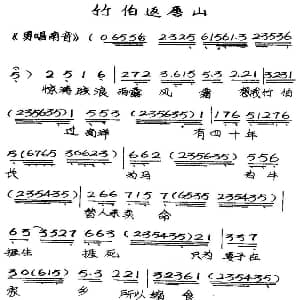 竹伯返唐山
《男唱南音》 (06536 2325 61561.3 23536
5) 2516 | 272 3.615 5.3 2.21 | 3231
惊涛骇浪 雨露风霜 想我竹伯
(235635) | 553 (235635) | 176 51276
过南洋 有四十年
5(6765 30623) | 662 (235635) 556
长 为马 为牛
(235435) | 266 7157(6535 235435) |
替人来卖命
63 3527 663 (235435)21 | 337
捱生捱死 只为妻子在
30(615) 5.3 221 | 32361 (235435)
家乡 所以缩食